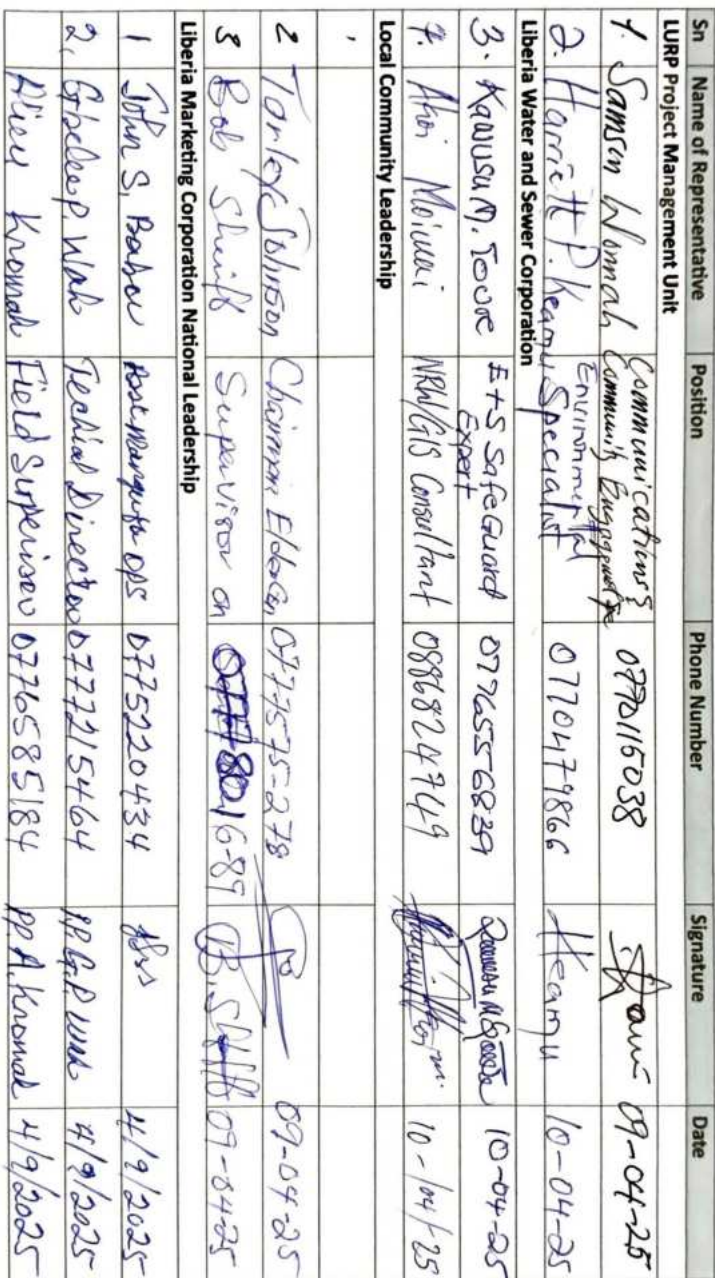 Sn Name of Representative Position Phone Number Signature Date
LURP Project Management Unit
1. Samson Wonnah Communications & Community Engagement 0770115038 09-04-25
2. Harriett P. Kearnu Environmental Specialist 0770479866 Hearnu 10-04-25
Liberia Water and Sewer Corporation
3. Kanusu M. Toure E+S SafeGuard Expert 0776556839 10-04-25
4. Ahoi Moiwai NRW/GIS Consultant 0886824749 10-/04/-25
Local Community Leadership
2 Johnson 077575-278 09-04-25
3 Bob Sheriff Supervisor on 16-89 B. 09-04-25
Liberia Marketing Corporation National Leadership
1 John S. 0775220434 4/9/2025
2, Director 0777215464 PP G.P. 4/9/2025
Kromah Field Supervisor 0776585184 PP A. Kromah 4/9/2025